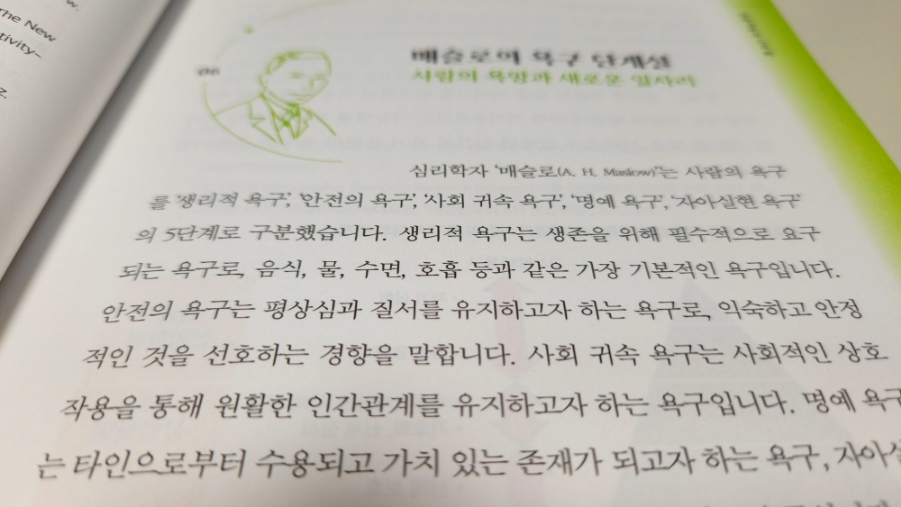 The New
tivity-
06
매슬로의 욕구 단계설
사람의 욕망과 새로운 일자리
심리학자 '매슬로(A. H. Maslow)'는 사람의 욕구
를 '생리적 욕구', '안전의 욕구', '사회 귀속 욕구', '명예 욕구', '자아실현 욕구'
의 5단계로 구분했습니다. 생리적 욕구는 생존을 위해 필수적으로 요구
되는 욕구로, 음식, 물, 수면, 호흡 등과 같은 가장 기본적인 욕구입니다.
안전의 욕구는 평상심과 질서를 유지하고자 하는 욕구로, 익숙하고 안정
적인 것을 선호하는 경향을 말합니다. 사회 귀속 욕구는 사회적인 상호
작용을 통해 원활한 인간관계를 유지하고자 하는 욕구입니다. 명예 욕구
는 타인으로부터 수용되고 가치 있는 존재가 되고자 하는 욕구, 자아실